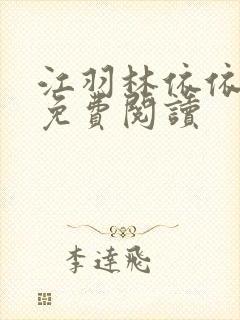 江羽林依依
免費閱讀
李達飛